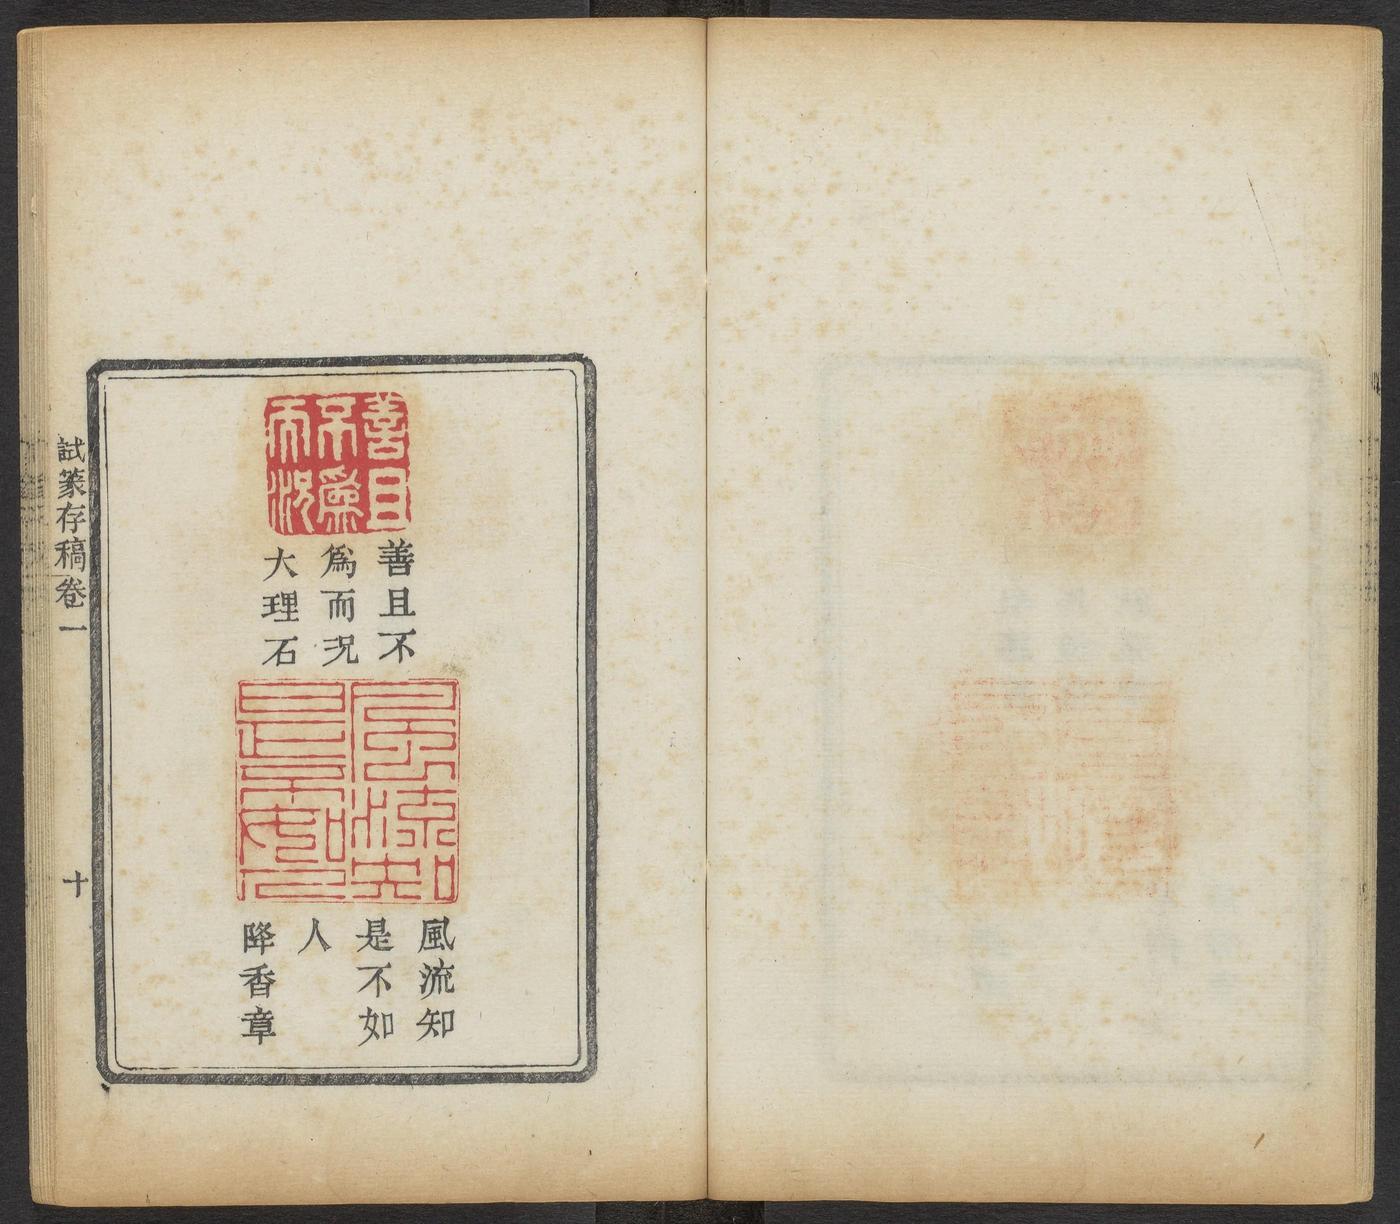 善且
不為
而況
善且不
為而況
大理石
風流知
是不如人
風流知
是不如
人
降香章
試篆存稿卷一
十